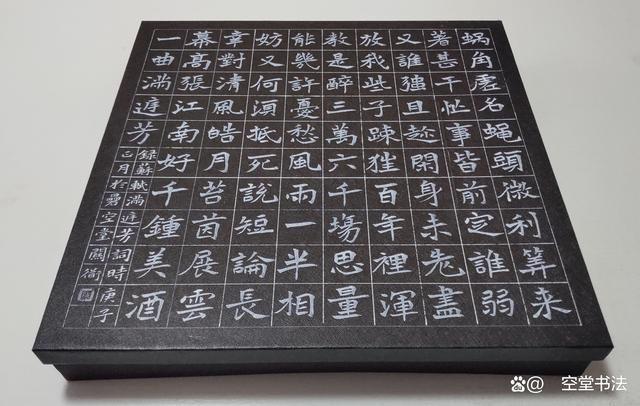 蝸角虛名蠅頭微利筭来
著甚干忙事皆前定誰弱
又誰强且趁閑身未老盡
放我些子疎狂百年裡渾
教是醉三萬六千塲思量
能幾許憂愁風雨一半相
妨又何須抵死說短論長
章對清風皓月苔茵展雲
幕高張江南好千鍾美酒
一曲滿庭芳
錄蘇軾滿庭芳詞時庚子
正月於空堂關衛
百度@空堂书法